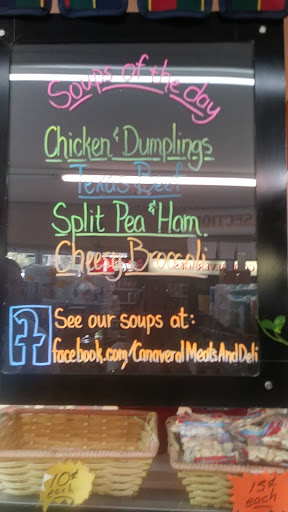 Soups of the day
Chicken & Dumplings
Texas Beef
Split Pea & Ham.
Cheesy Broccoli
See our soups at:
facebook.com/CanaveralMeatsAndDeli
10¢
each
15¢
each